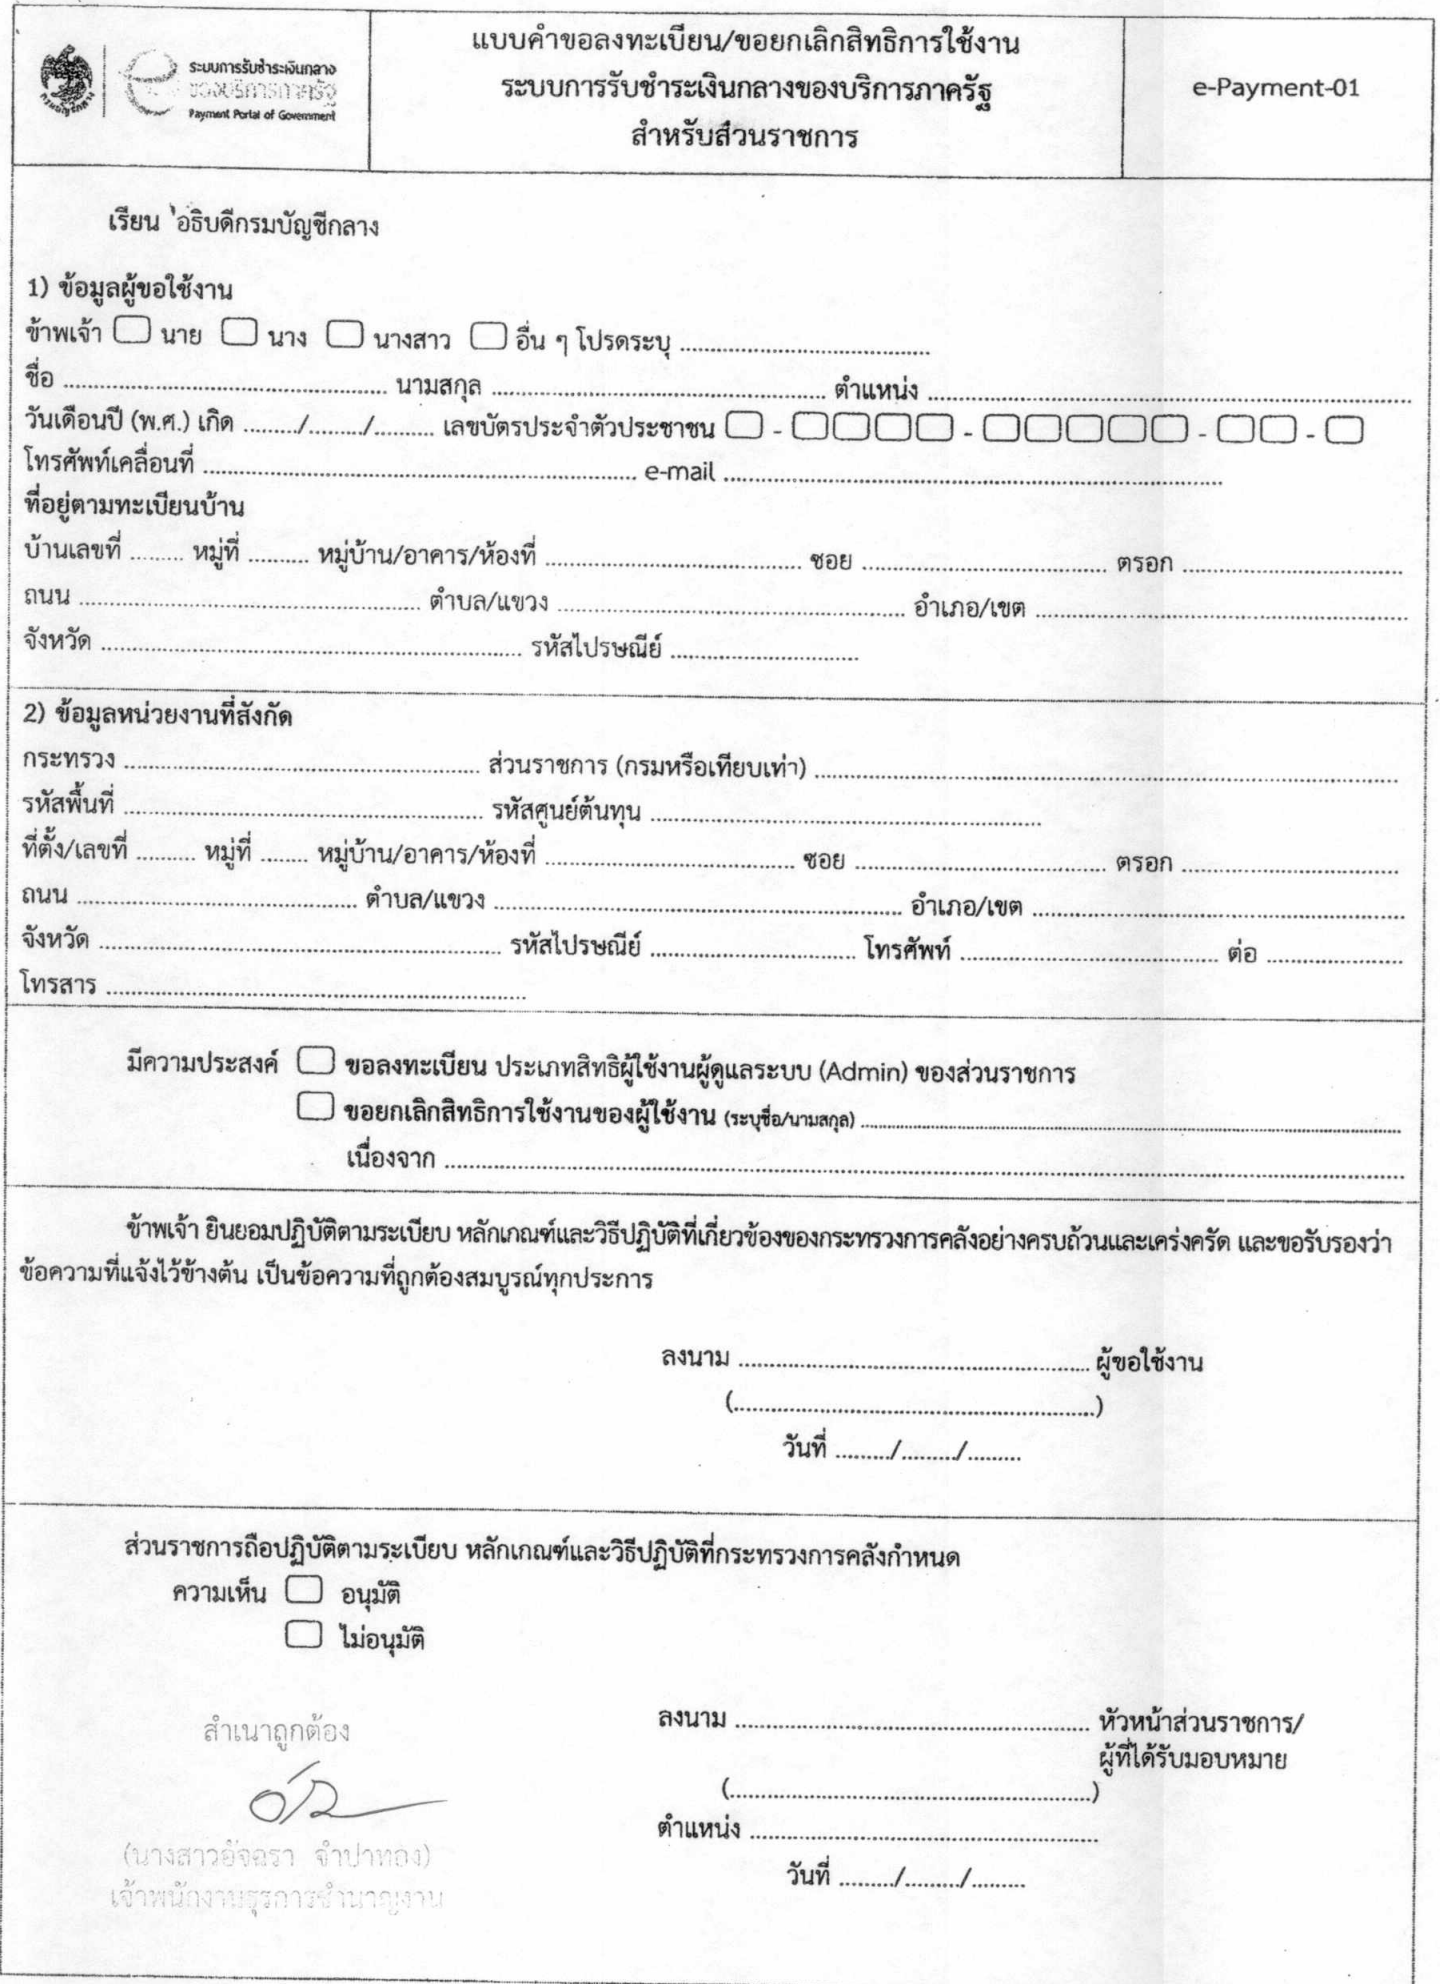 กรมบัญชีกลาง
ระบบการรับชำระเงินกลาง
ของบริการภาครัฐ
Payment Portal of Government
แบบคำขอลงทะเบียน/ขอยกเลิกสิทธิการใช้งาน
ระบบการรับชำระเงินกลางของบริการภาครัฐ
สำหรับส่วนราชการ
e-Payment-01
เรียน อธิบดีกรมบัญชีกลาง
1) ข้อมูลผู้ขอใช้งาน
ข้าพเจ้า นาย นาง นางสาว อื่น ๆ โปรดระบุ ................................................
ชื่อ ................................................ นามสกุล ................................................ ตำแหน่ง ................................................
วันเดือนปี (พ.ศ.) เกิด ........./........./......... เลขบัตรประจำตัวประชาชน - - - -
โทรศัพท์เคลื่อนที่ ................................................ e-mail ................................................
ที่อยู่ตามทะเบียนบ้าน
บ้านเลขที่ ......... หมู่ที่ .......... หมู่บ้าน/อาคาร/ห้องที่ .............................. ซอย .............................. ตรอก ..............................
ถนน ................................................ ตำบล/แขวง ................................................ อำเภอ/เขต ................................................
จังหวัด ................................................ รหัสไปรษณีย์ ..............................
2) ข้อมูลหน่วยงานที่สังกัด
กระทรวง ................................................ ส่วนราชการ (กรมหรือเทียบเท่า) ................................................
รหัสพื้นที่ ................................................ รหัสศูนย์ต้นทุน ................................................
ที่ตั้ง/เลขที่ .......... หมู่ที่ ........ หมู่บ้าน/อาคาร/ห้องที่ .............................. ซอย .............................. ตรอก ..............................
ถนน ................................................ ตำบล/แขวง ................................................ อำเภอ/เขต ................................................
จังหวัด ................................................ รหัสไปรษณีย์ .............................. โทรศัพท์ .............................. ต่อ ....................
โทรสาร ................................................
มีความประสงค์ ขอลงทะเบียน ประเภทสิทธิผู้ใช้งานผู้ดูแลระบบ (Admin) ของส่วนราชการ
ขอยกเลิกสิทธิการใช้งานของผู้ใช้งาน (ระบุชื่อ/นามสกุล) ................................................
เนื่องจาก ................................................
ข้าพเจ้า ยินยอมปฏิบัติตามระเบียบ หลักเกณฑ์และวิธีปฏิบัติที่เกี่ยวข้องของกระทรวงการคลังอย่างครบถ้วนและเคร่งครัด และขอรับรองว่า
ข้อความที่แจ้งไว้ข้างต้น เป็นข้อความที่ถูกต้องสมบูรณ์ทุกประการ
ลงนาม ................................................ ผู้ขอใช้งาน
(................................................)
วันที่ ........./........./.........
ส่วนราชการถือปฏิบัติตามระเบียบ หลักเกณฑ์และวิธีปฏิบัติที่กระทรวงการคลังกำหนด
ความเห็น อนุมัติ
ไม่อนุมัติ
ลงนาม ................................................ หัวหน้าส่วนราชการ/
ผู้ที่ได้รับมอบหมาย
(................................................)
ตำแหน่ง ................................................
วันที่ ........./........./.........
สำเนาถูกต้อง
(นางสาวอัจฉรา จำปาทอง)
เจ้าพนักงานธุรการชำนาญงาน